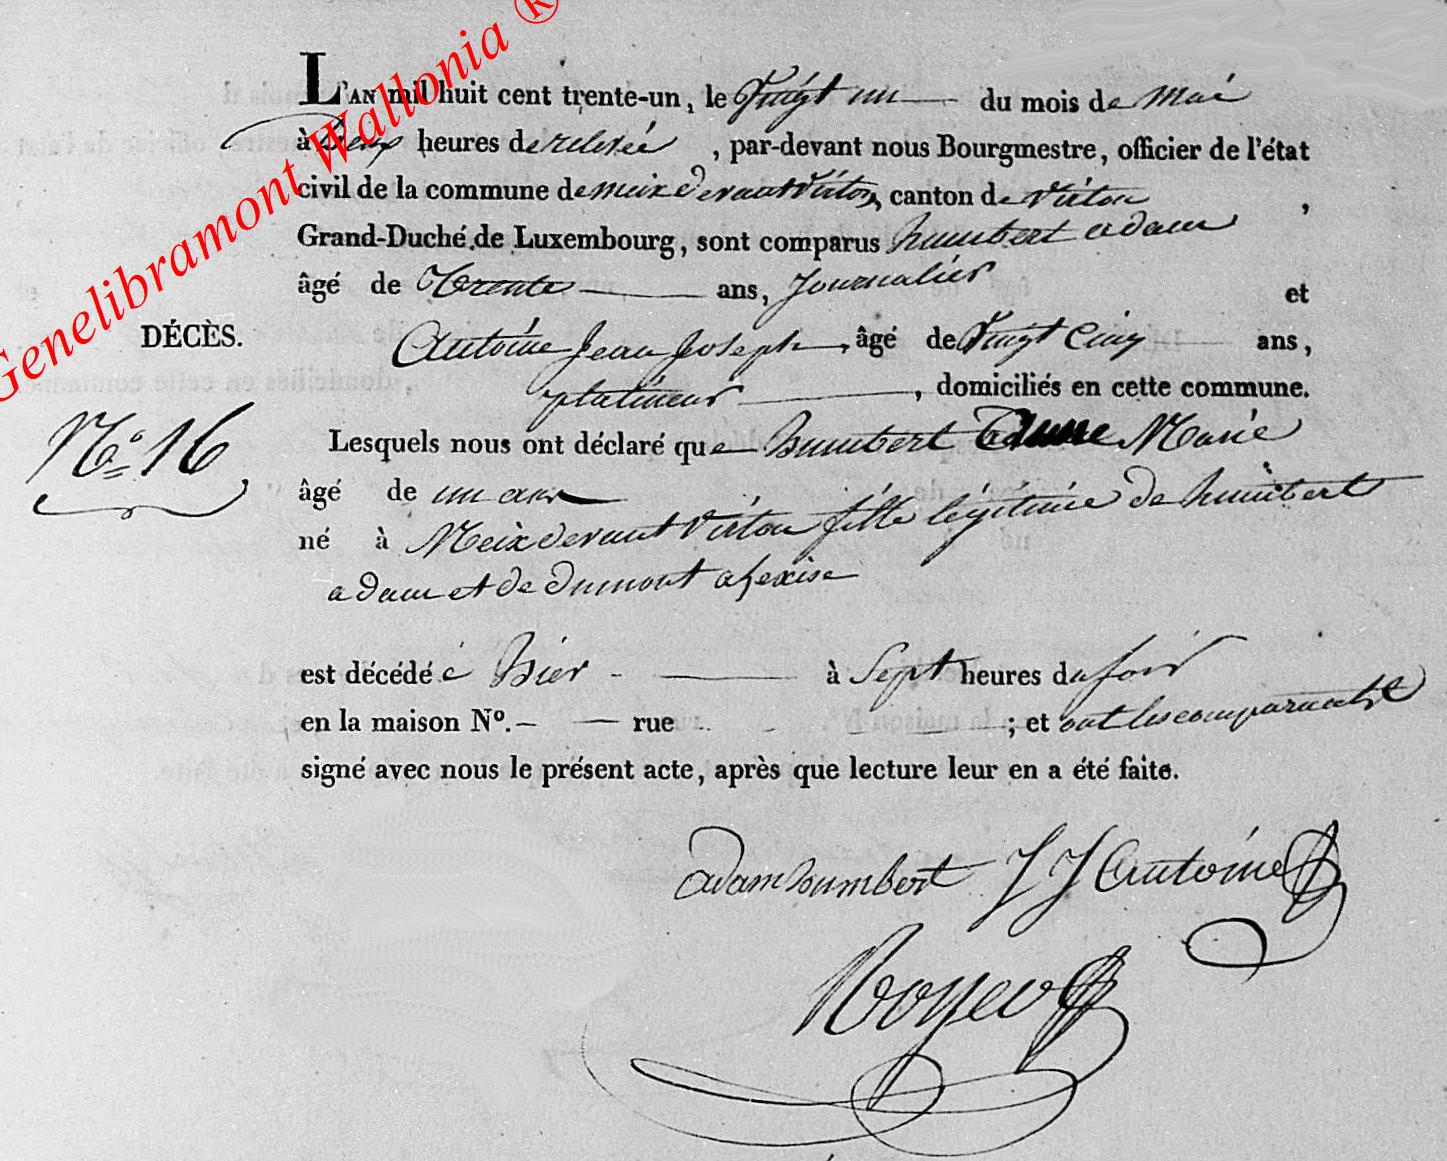 Genelibramont Wallonia ®
L'AN mil huit cent trente-un, le Vingt un du mois de Mai
à Deux heures de relevée, par-devant nous Bourgmestre, officier de l'état
civil de la commune de meix devant Virton, canton de Virton,
Grand-Duché de Luxembourg, sont comparus humbert adam
âgé de Trente ans, Journalier et
DÉCÈS.
Antoine Jean Joseph, âgé de Vingt Cinq ans,
platineur, domiciliés en cette commune.
N.° 16
Lesquels nous ont déclaré que humbert Marie
âgé de un an
né à Meix devant Virton fille légitime de humbert
adam et de dumont alexise
est décédé é hier à Sept heures du soir
en la maison N°. – — rue ; et ont les comparants
signé avec nous le présent acte, après que lecture leur en a été faite.
adam humbert J J Antoine